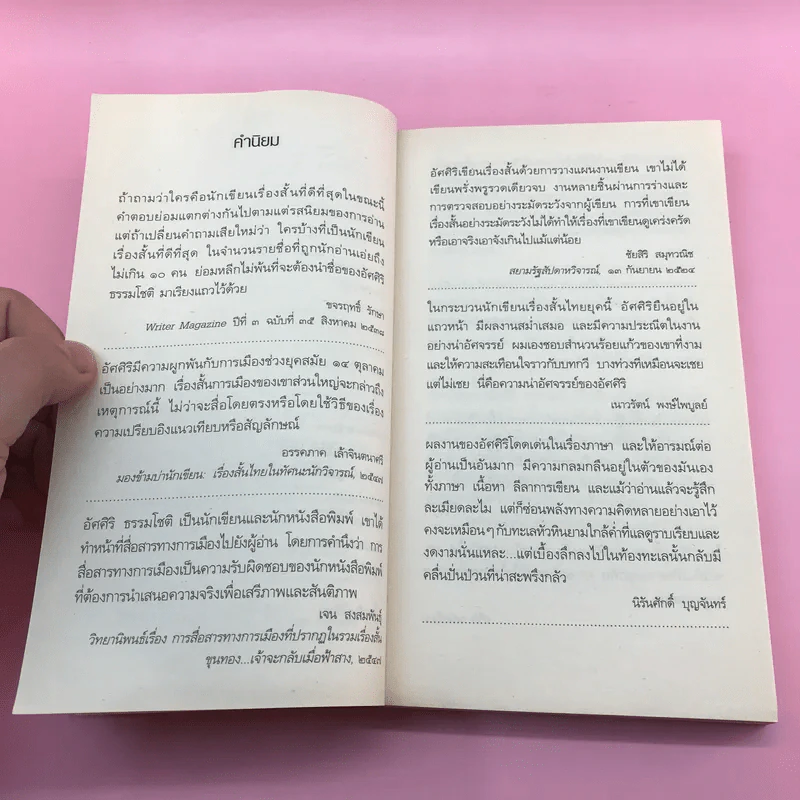 คำนิยม
ถ้าถามว่าใครคือนักเขียนเรื่องสั้นที่ดีที่สุดในขณะนี้
คำตอบย่อมแตกต่างกันไปตามแต่รสนิยมของการอ่าน
แต่ถ้าเปลี่ยนคำถามเสียใหม่ว่า ใครบ้างที่เป็นนักเขียน
เรื่องสั้นที่ดีที่สุด ในจำนวนรายชื่อที่ถูกนักอ่านเอ่ยถึง
ไม่เกิน ๑๐ คน ย่อมหลีกไม่พ้นที่จะต้องนำชื่อของอัศศิริ
ธรรมโชติ มาเรียงแถวไว้ด้วย
ขจรฤทธิ์ รักษา
Writer Magazine ปีที่ ๓ ฉบับที่ ๓๕ สิงหาคม ๒๕๓๘
อัศศิริมีความผูกพันกับการเมืองช่วงยุคสมัย ๑๔ ตุลาคม
เป็นอย่างมาก เรื่องสั้นการเมืองของเขาส่วนใหญ่จะกล่าวถึง
เหตุการณ์นี้ ไม่ว่าจะสื่อโดยตรงหรือโดยใช้วิธีของเรื่อง
ความเปรียบอิงแนวเทียบหรือสัญลักษณ์
อรรคภาค เล้าจินตนาศรี
มองข้ามบ่านักเขียน: เรื่องสั้นไทยในทัศนะนักวิจารณ์, ๒๕๔๗
อัศศิริ ธรรมโชติ เป็นนักเขียนและนักหนังสือพิมพ์ เขาได้
ทำหน้าที่สื่อสารทางการเมืองไปยังผู้อ่าน โดยการคำนึงว่า การ
สื่อสารทางการเมืองเป็นความรับผิดชอบของนักหนังสือพิมพ์
ที่ต้องการนำเสนอความจริงเพื่อเสรีภาพและสันติภาพ
เจน สงสมพันธุ์
วิทยานิพนธ์เรื่อง การสื่อสารทางการเมืองที่ปรากฏในรวมเรื่องสั้น
ขุนทอง...เจ้าจะกลับเมื่อฟ้าสาง, ๒๕๔๗
อัศศิริเขียนเรื่องสั้นด้วยการวางแผนงานเขียน เขาไม่ได้
เขียนพรั่งพรูรวดเดียวจบ งานหลายชิ้นผ่านการร่างและ
การตรวจสอบอย่างระมัดระวังจากผู้เขียน การที่เขาเขียน
เรื่องสั้นอย่างระมัดระวังไม่ได้ทำให้เรื่องที่เขาเขียนดูเคร่งครัด
หรือเอาจริงเอาจังเกินไปแม้แต่น้อย
ชัยสิริ สมุทวณิช
สยามรัฐสัปดาหวิจารณ์, ๑๓ กันยายน ๒๕๒๔
ในกระบวนนักเขียนเรื่องสั้นไทยยุคนี้ อัศศิริยืนอยู่ใน
แถวหน้า มีผลงานสม่ำเสมอ และมีความประณีตในงาน
อย่างน่าอัศจรรย์ ผมเองชอบสำนวนร้อยแก้วของเขาที่งาม
และให้ความสะเทือนใจราวกับบทกวี บางท่วงทีเหมือนจะเชย
แต่ไม่เชย นี่คือความน่าอัศจรรย์ของอัศศิริ
เนาวรัตน์ พงษ์ไพบูลย์
ผลงานของอัศศิริโดดเด่นในเรื่องภาษา และให้อารมณ์ต่อ
ผู้อ่านเป็นอันมาก มีความกลมกลืนอยู่ในตัวของมันเอง
ทั้งภาษา เนื้อหา ลีลาการเขียน และแม้ว่าอ่านแล้วจะรู้สึก
ละเมียดละไม แต่ก็ซ่อนพลังทางความคิดหลายอย่างเอาไว้
คงจะเหมือนๆ กับทะเลหัวหินยามใกล้ค่ำที่แลดูราบเรียบและ
งดงามนั่นแหละ...แต่เบื้องลึกลงไปในท้องทะเลนั้นกลับมี
คลื่นปั่นป่วนที่น่าสะพรึงกลัว
นิรันศักดิ์ บุญจันทร์